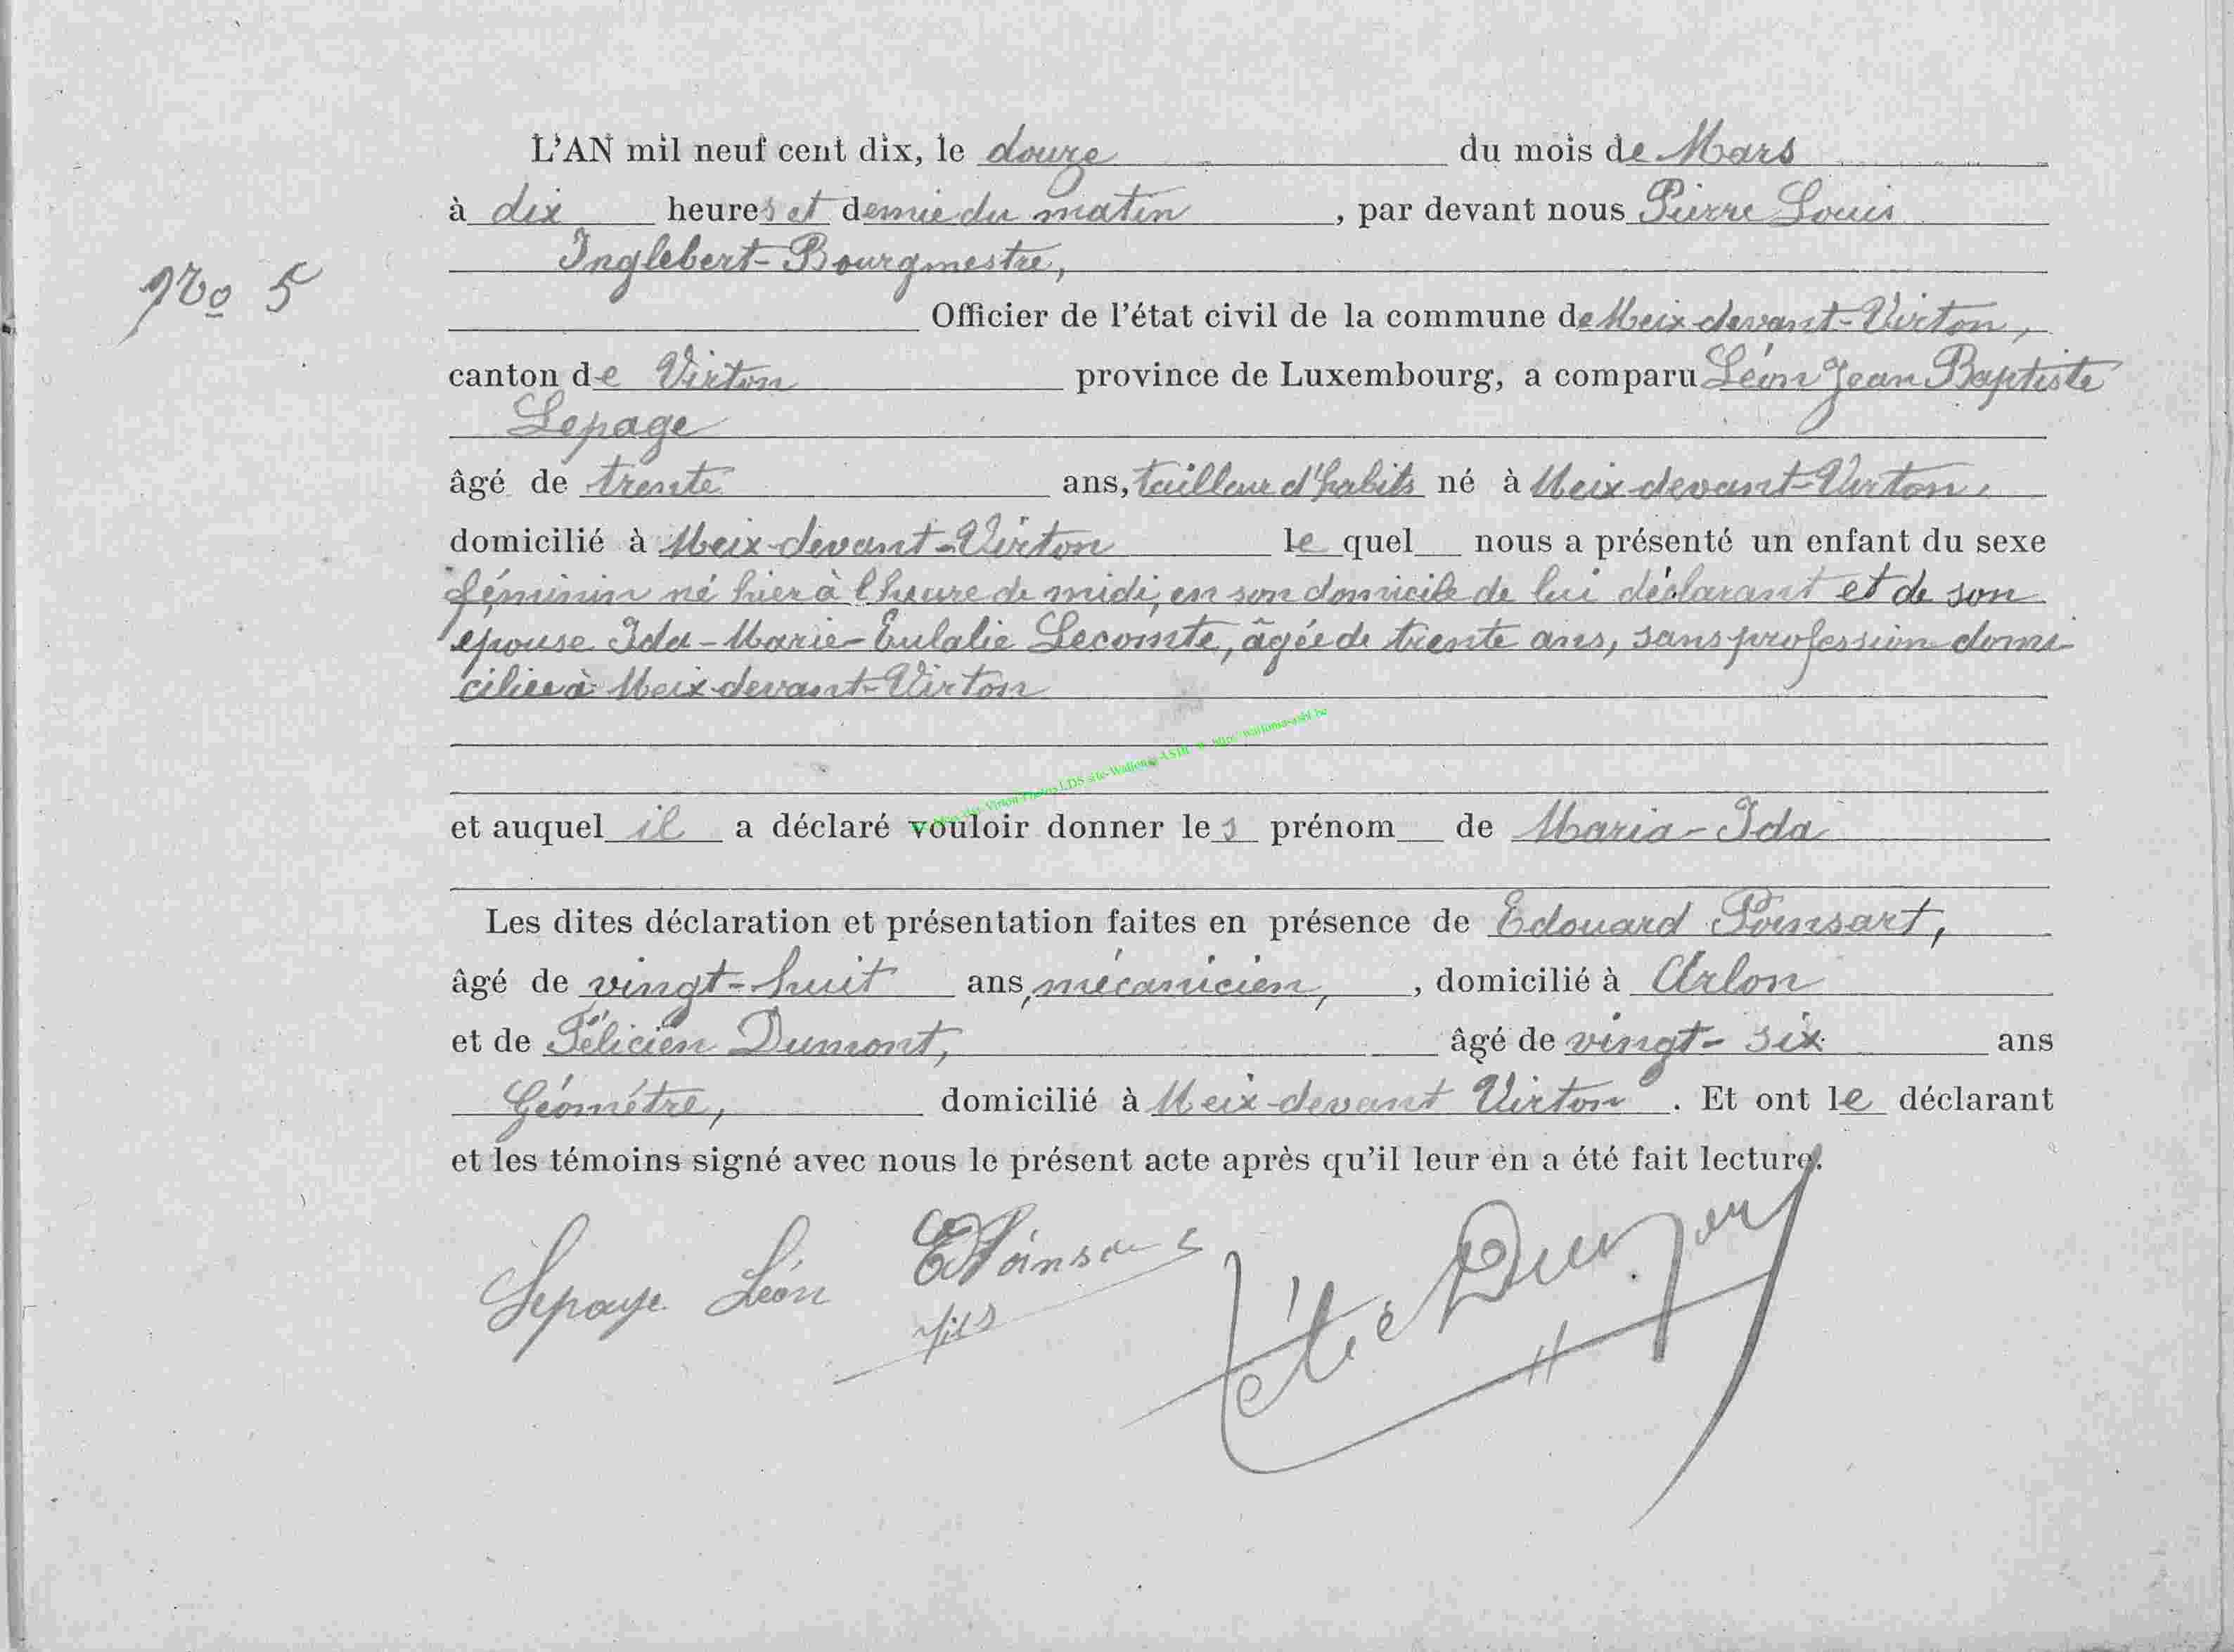 L'AN mil neuf cent dix, le douze du mois de Mars
à dix heures et demie du matin, par devant nous Pierre Louis
Inglebert-Bourgmestre,
No 5
Officier de l'état civil de la commune de Meix-devant-Virton,
canton de Virton province de Luxembourg, a comparu Léon Jean Baptiste
Lepage
âgé de trente ans, tailleur d'habits né à Meix-devant-Virton,
domicilié à Meix-devant-Virton le quel nous a présenté un enfant du sexe
féminin né hier à l'heure de midi, en son domicile de lui déclarant et de son
epouse Ida-Marie-Eulalie Lecomte, âgée de trente ans, sans profession domi-
ciliée à Meix-devant-Virton
et auquel il a déclaré vouloir donner les prénom de Maria-Ida
Les dites déclaration et présentation faites en présence de Edouard Ponsart,
âgé de vingt-huit ans, mécanicien, , domicilié à Arlon
et de Félicien Dumont, âgé de vingt-six ans
Géométre, domicilié à Meix-devant Virton. Et ont le déclarant
et les témoins signé avec nous le présent acte après qu'il leur en a été fait lecture.
Lepage Léon
fils